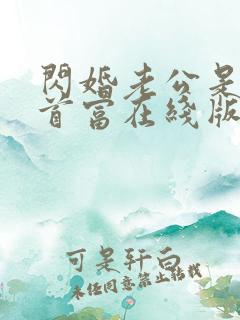 閃婚老公是
首富在綫版
可是轩白
未经同意禁止转载